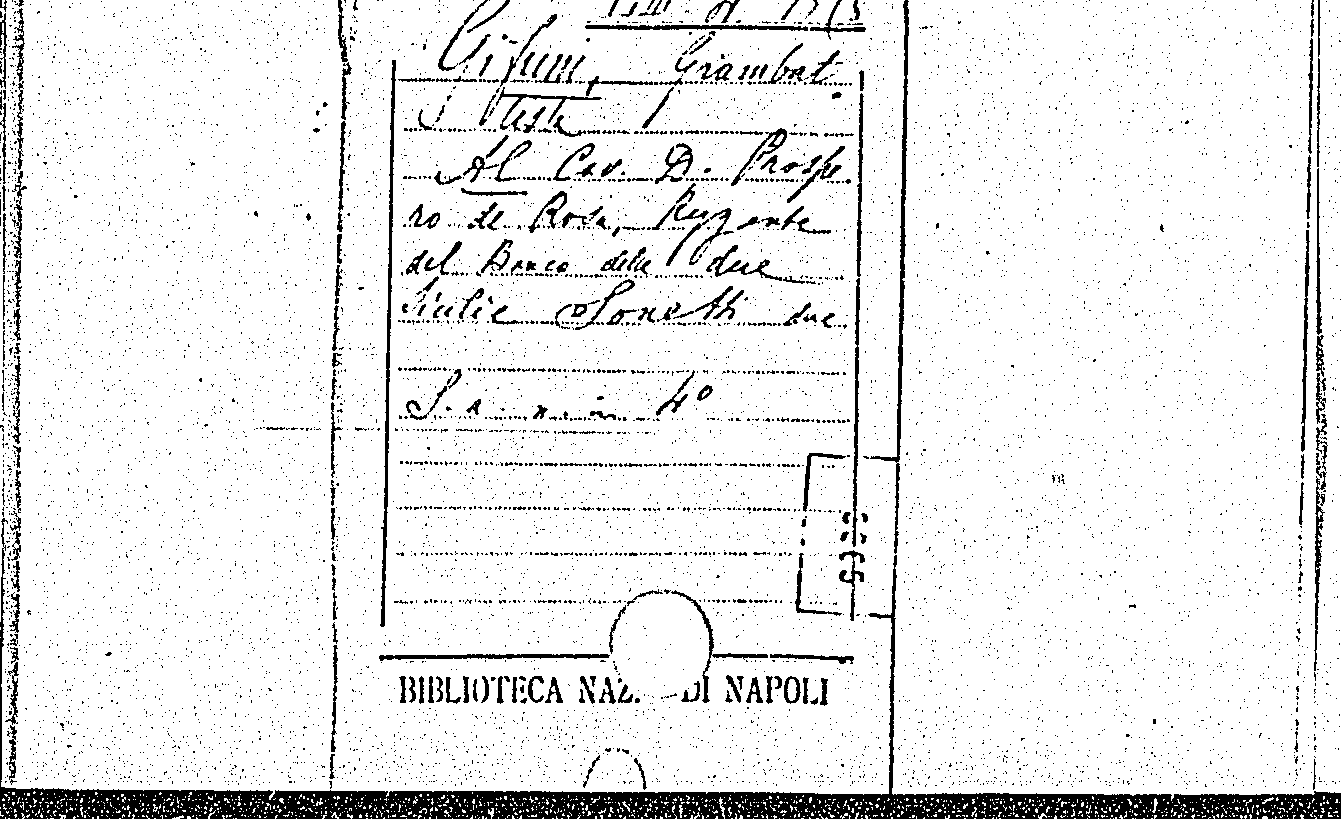 Gifuni, Giambat.
tista
Al Cav. D. Prospe.
ro de Rosa, Reggente
del Banco delle due
Sicilie Sonetti due.
S. n. n. in 4º
BIBLIOTECA NAZ. DI NAPOLI